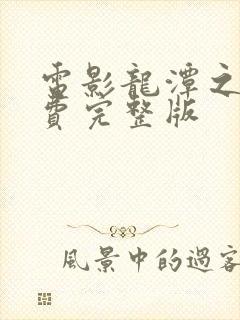 雷影龍潭之
費完整版
風景中的過客